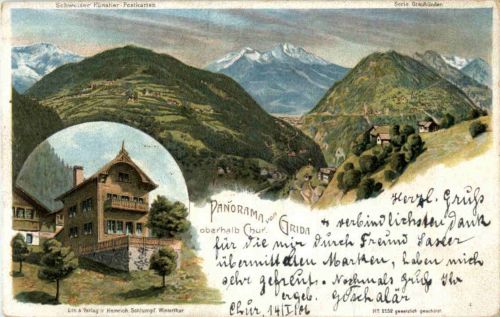 Schweizer Künstler-Postkarten
Serie Graubünden
PANORAMA VON GRIDA
oberhalb Chur.
Herzl. Gruß
& verbindlichsten Dank
für die mir durch Freund
übermittelten Marken, haben mich
sehr gefreut. Nochmals Gruß Ihr
ergeb.
Chur, 14/I/06
Lith. & Verlag v. Heinrich Schlumpf, Winterthur
Nº 2252 gesetzlich geschützt.